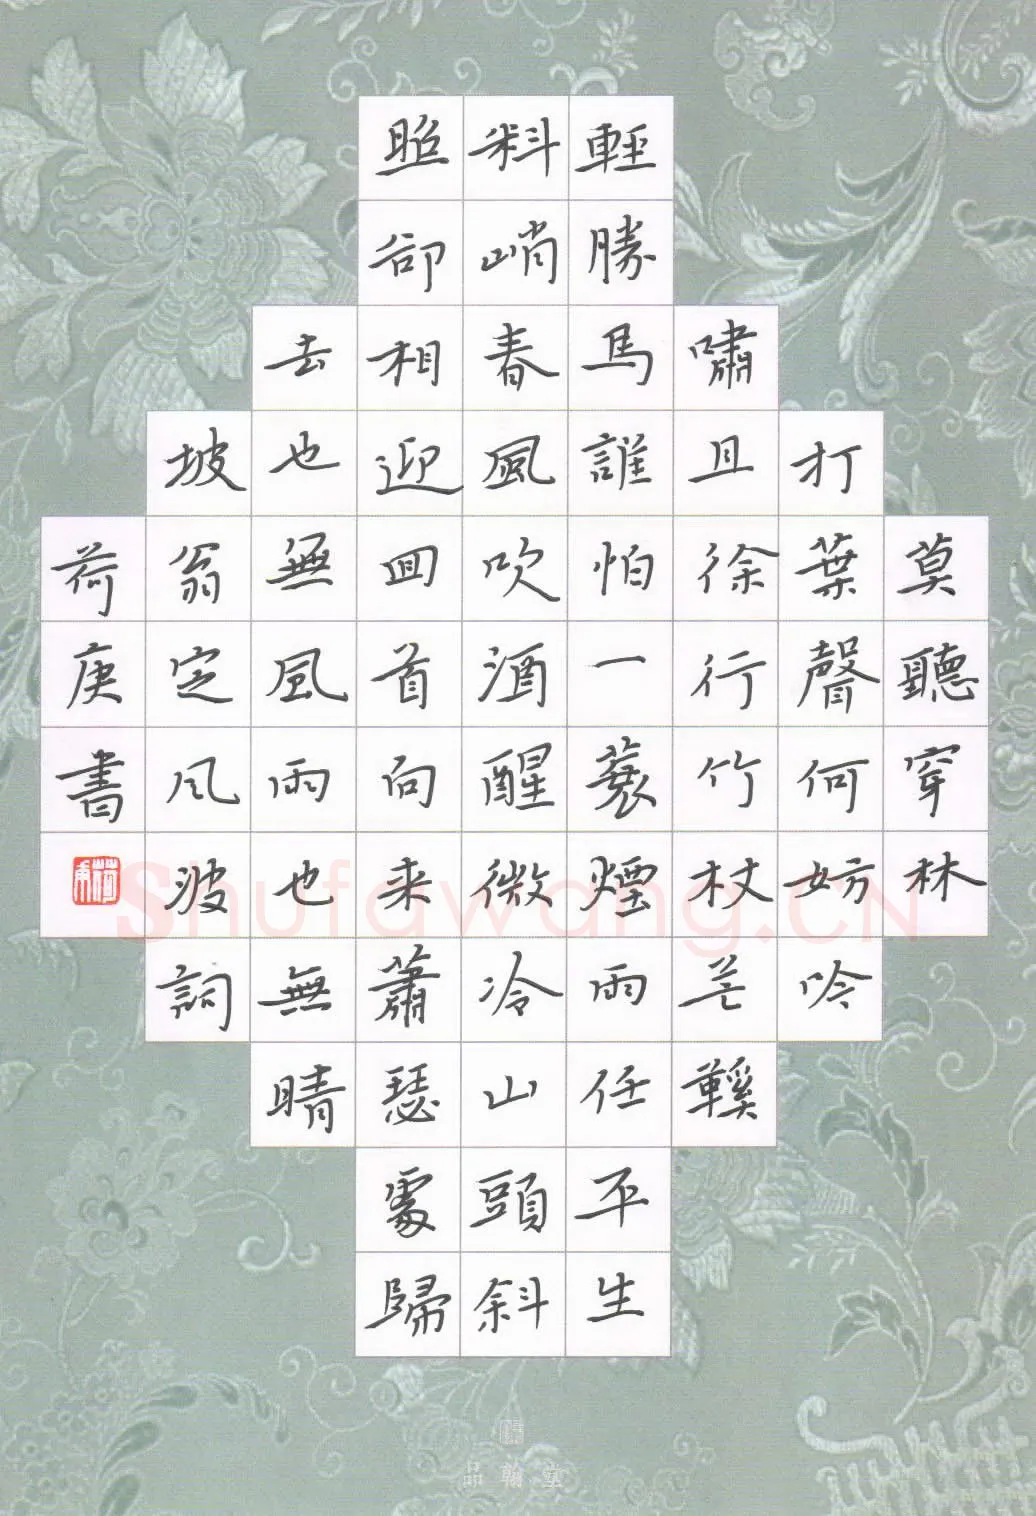 莫聽穿林
打葉聲何妨吟
嘯且徐行竹杖芒鞵
輕勝馬誰怕一蓑煙雨任平生
料峭春風吹酒醒微冷山頭斜
照卻相迎囬首向来蕭瑟處歸
去也無風雨也無晴
坡翁定风波詞
荷庚書
Shufawang.CN
品翰堂